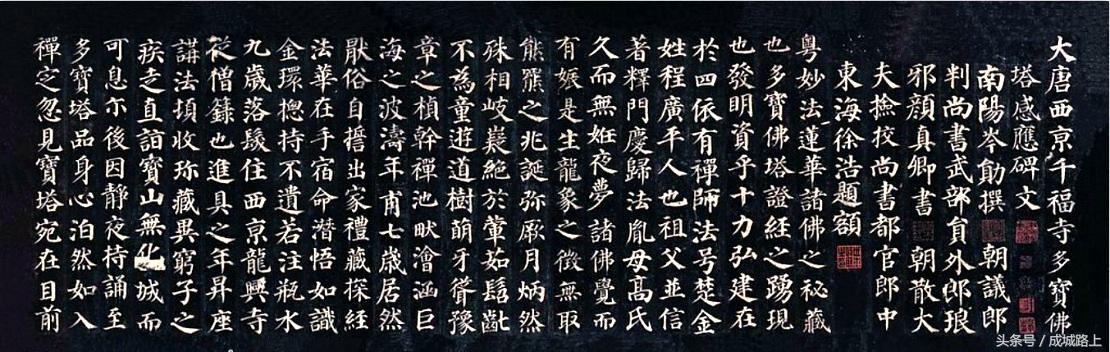 大唐西京千福寺多寶佛
塔感應碑文
南陽岑勛撰 朝議郎
判尚書武部員外郎琅
邪顏真卿書 朝散大
夫撿挍尚書都官郎中
東海徐浩題額
粵妙法蓮華諸佛之秘藏
也多寶佛塔證經之踴現
也發明資乎十力弘建在
於四依有禪師法号楚金
姓程廣平人也祖父並信
著釋門慶歸法胤母高氏
久而無姙夜夢諸佛覺而
有娠是生龍象之徵無取
熊羆之兆誕弥厥月炳然
殊相岐嶷絕於葷茹髫齔
不為童遊道樹萌牙聳豫
章之楨幹禪池畎澮涵巨
海之波濤年甫七歲居然
厭俗自誓出家禮藏探經
法華在手宿命潛悟如識
金環揔持不遺若注瓶水
九歲落髮住西京龍興寺
從僧籙也進具之年昇座
講法頓收珎藏異窮子之
疾走直詣寶山無化城而
可息尒後因靜夜持誦至
多寶塔品身心泊然如入
禪定忽見寶塔宛在目前
头条号 / 成城路上